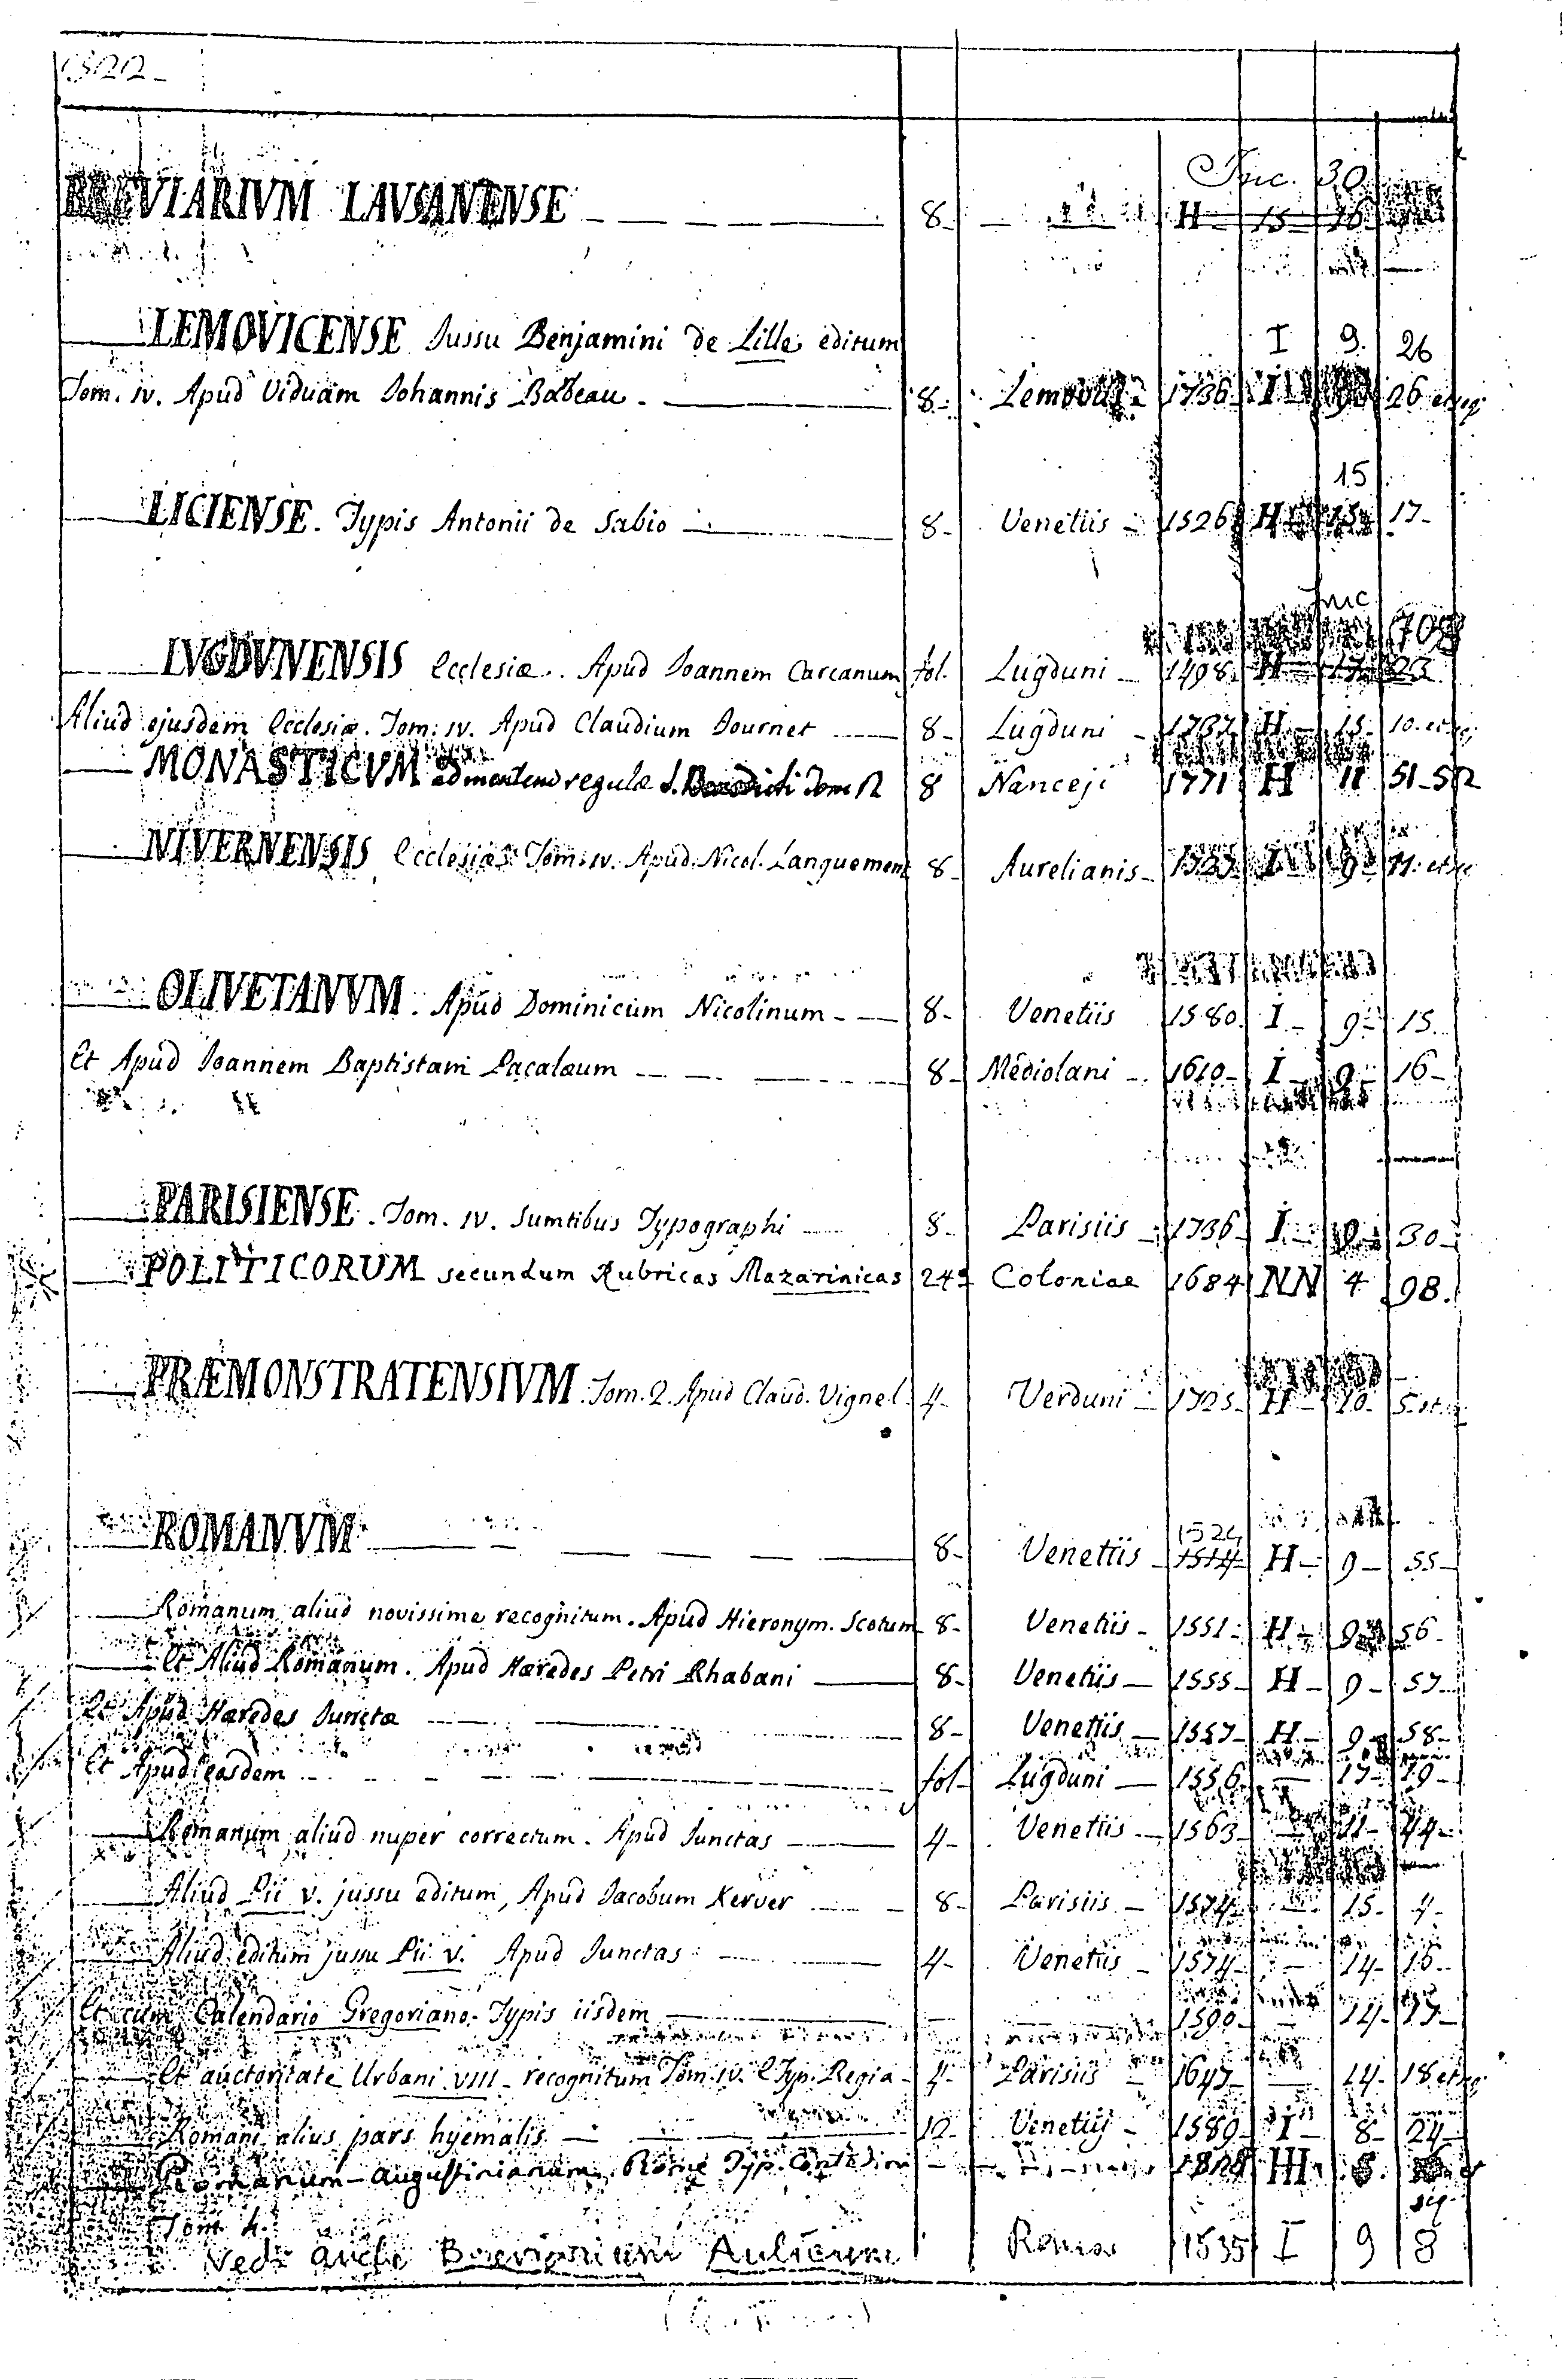 Inc. 30
BREVIARIVM LAVSANENSE 8- H- 15- 16-
I 9. 26
LEMOVICENSE Jussu Benjamini de Lille editum
Tom. IV. Apud Viduam Johannis Babeau. 8- 1736 I 9 26 et seq.
15
LICIENSE. Typis Antonii de Sabio 8- Venetiis - 1526 H 15 17-
Inc
LVGDVNENSIS Ecclesiæ. Apud Joannem Carcanum fol. Lugduni - 1498 H 17 23
Aliud ejusdem Ecclesiæ. Tom: IV. Apud Claudium Journet 8- Lugduni - 1737 H- 15- 10. et
MONASTICVM ad mentem regulæ S. Benedicti Tom 2 8 Nanceji 1771 H 11 51-52
NIVERNENSIS Ecclesiæ. Tom. IV. Apud. Nicol. Languement 8- Aurelianis- I 9- 11. et
OLIVETANVM. Apud Dominicum Nicolinum 8- Venetiis 1580. I- 9- 15.
Et Apud Joannem Baptistam Pacalæum 8- Mediolani - 1610- I- 9- 16-
PARISIENSE. Tom. IV. Sumtibus Typographi 8- Parisiis - 1736- I- 9- 30-
POLITICORUM secundum Rubricas Mazarinicas 24° Coloniae 1684 NN 4 98.
PRÆMONSTRATENSIVM. Tom. 2. Apud Claud. Vignel. 4- Verduni - 1725- H- 10- 5. et
1524
ROMANVM 8- Venetiis - 1514- H- 9- 55-
Romanum aliud novissime recognitum. Apud Hieronym. Scotum 8- Venetiis - 1551- H- 9- 56-
Et Aliud Romanum. Apud Hæredes Petri Rhabani 8- Venetiis - 1555- H- 9- 57-
Et Apud Hæredes Junctæ 8- Venetiis - 1557- H- 9- 58-
Et Apud easdem fol- Lugduni - 1556- 17- 19-
Romanum aliud nuper correctum. Apud Junctas 4- Venetiis - 1563- 11- 44-
Aliud Pii V. jussu editum, Apud Jacobum Kerver 8- Parisiis - 1574- 15- 4-
Aliud editum jussu Pii V. Apud Junctas 4- Venetiis - 1574- 14- 16-
Et cum Calendario Gregoriano. Typis iisdem 1590- 14- 17-
Et auctoritate Urbani VIII recognitum Tom. IV. E Typ. Regia- 4- Parisiis - 1647- 14- 18 et seq.
Romani alius pars hyemalis 12- Venetiis - 1589- I- 8- 24-
Romanum-Augustinianum. Romæ Typ. III 8.
Tom 4. seq.
Vedi anche Breviarium Aulicum Romae 1535 I 9 8